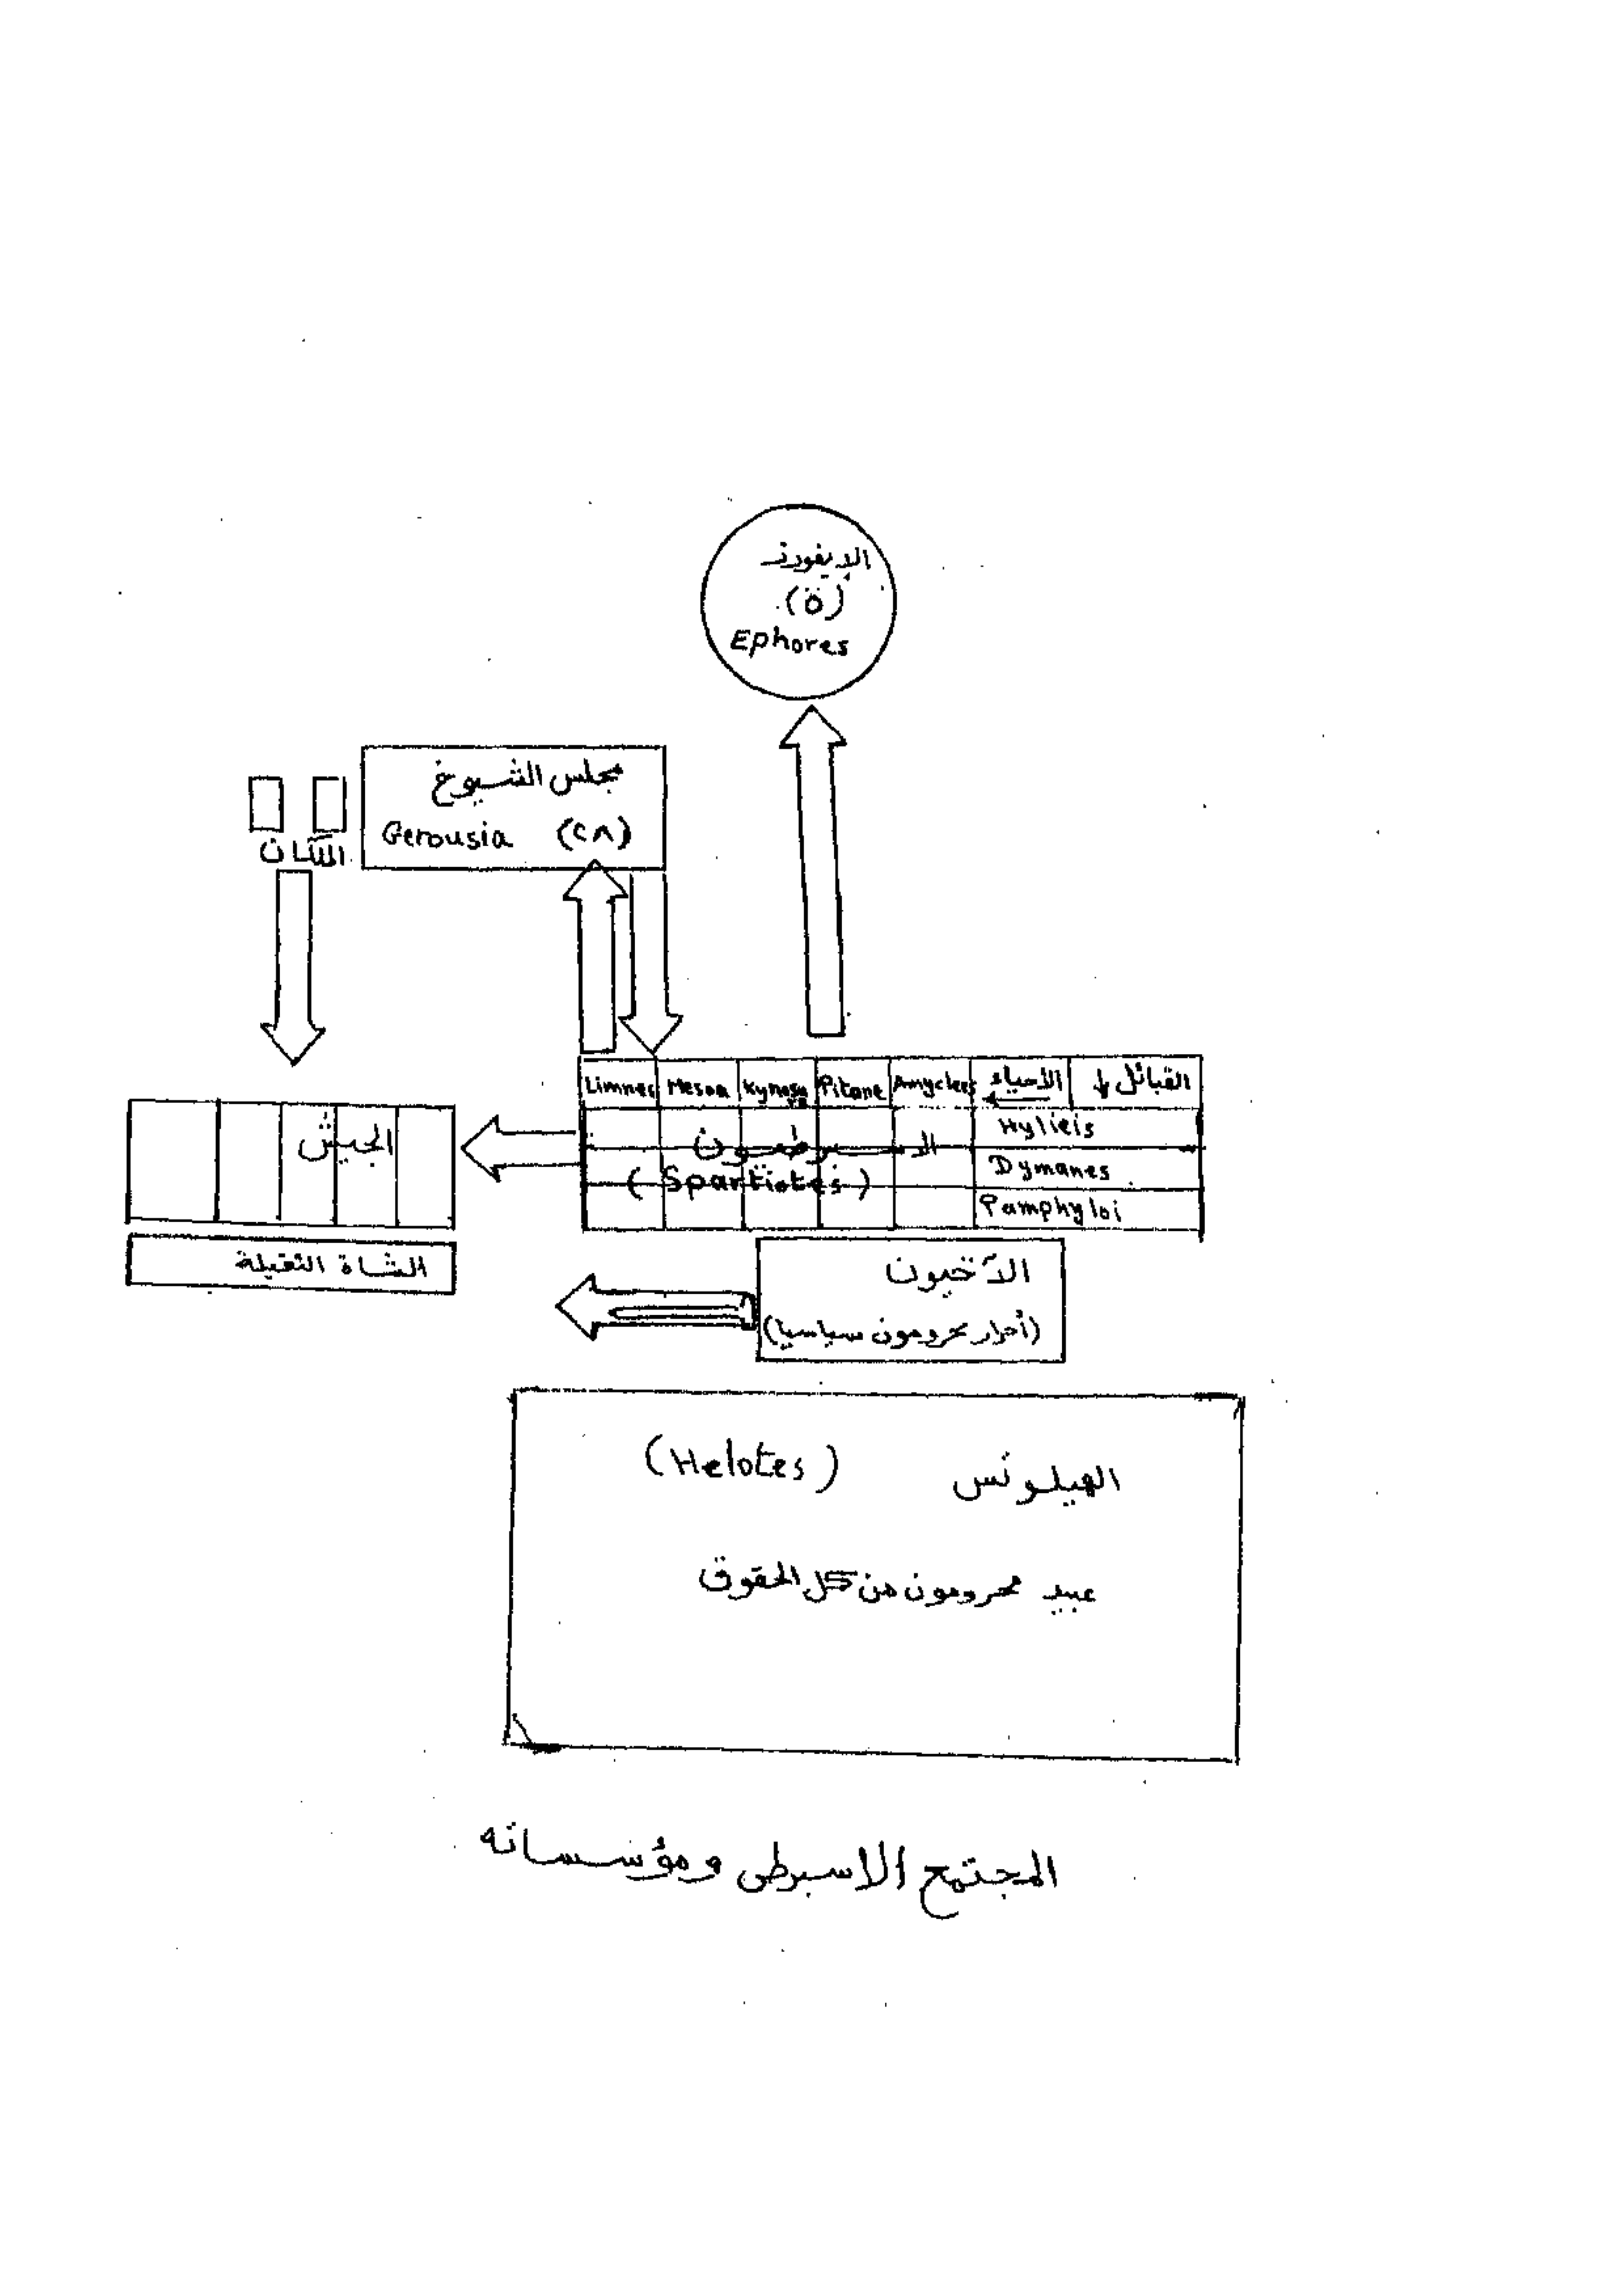 الإيفورز
(٥)
Ephores
مجلس الشيوخ
(٢٨) Gerousia
الملكان
القبائل ↓ الأحياء ← Amyclees Pitane Kynosura Mesoa Limnes
Hylleis
Dymanes
Pamphyloi
الاسبرطيون
(Spartiotes)
الجيش
المشاة الثقيلة
الآخيون
(أحرار محرومون سياسيا)
الهيلوتس (Helotes)
عبيد محرومون من كل الحقوق
المجتمع الاسبرطي ومؤسساته